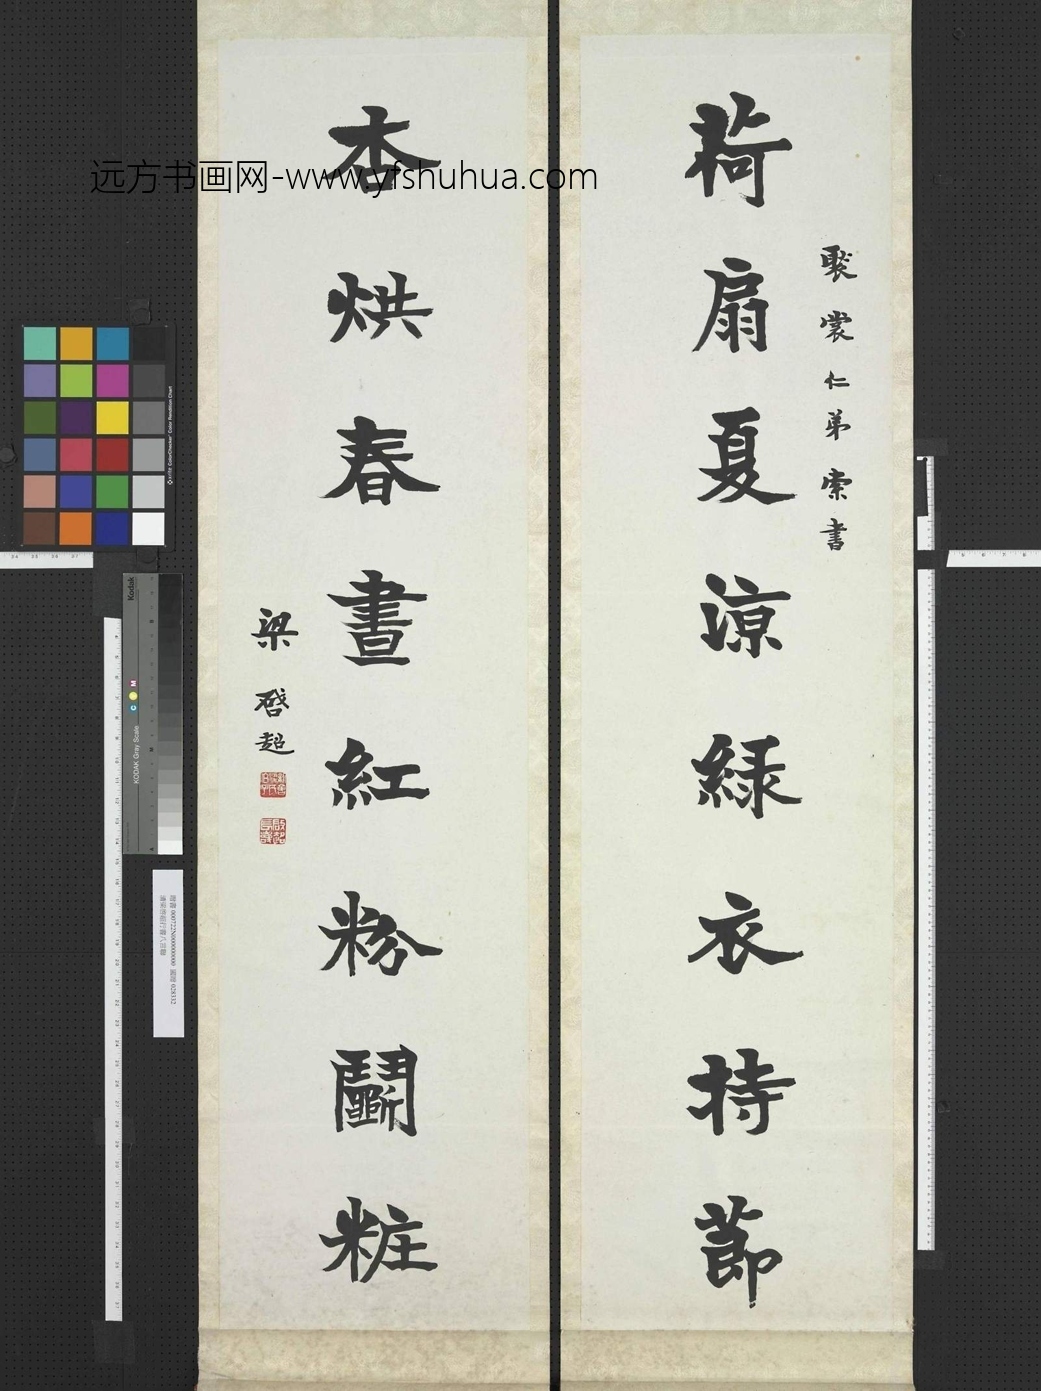 荷扇夏涼綠衣持節
褧裳仁弟索書
杏烘春晝紅粉鬭粧
梁啓超
远方书画网-www.yfshuhua.com
Kodak
KODAK Gray Scale
C Y M